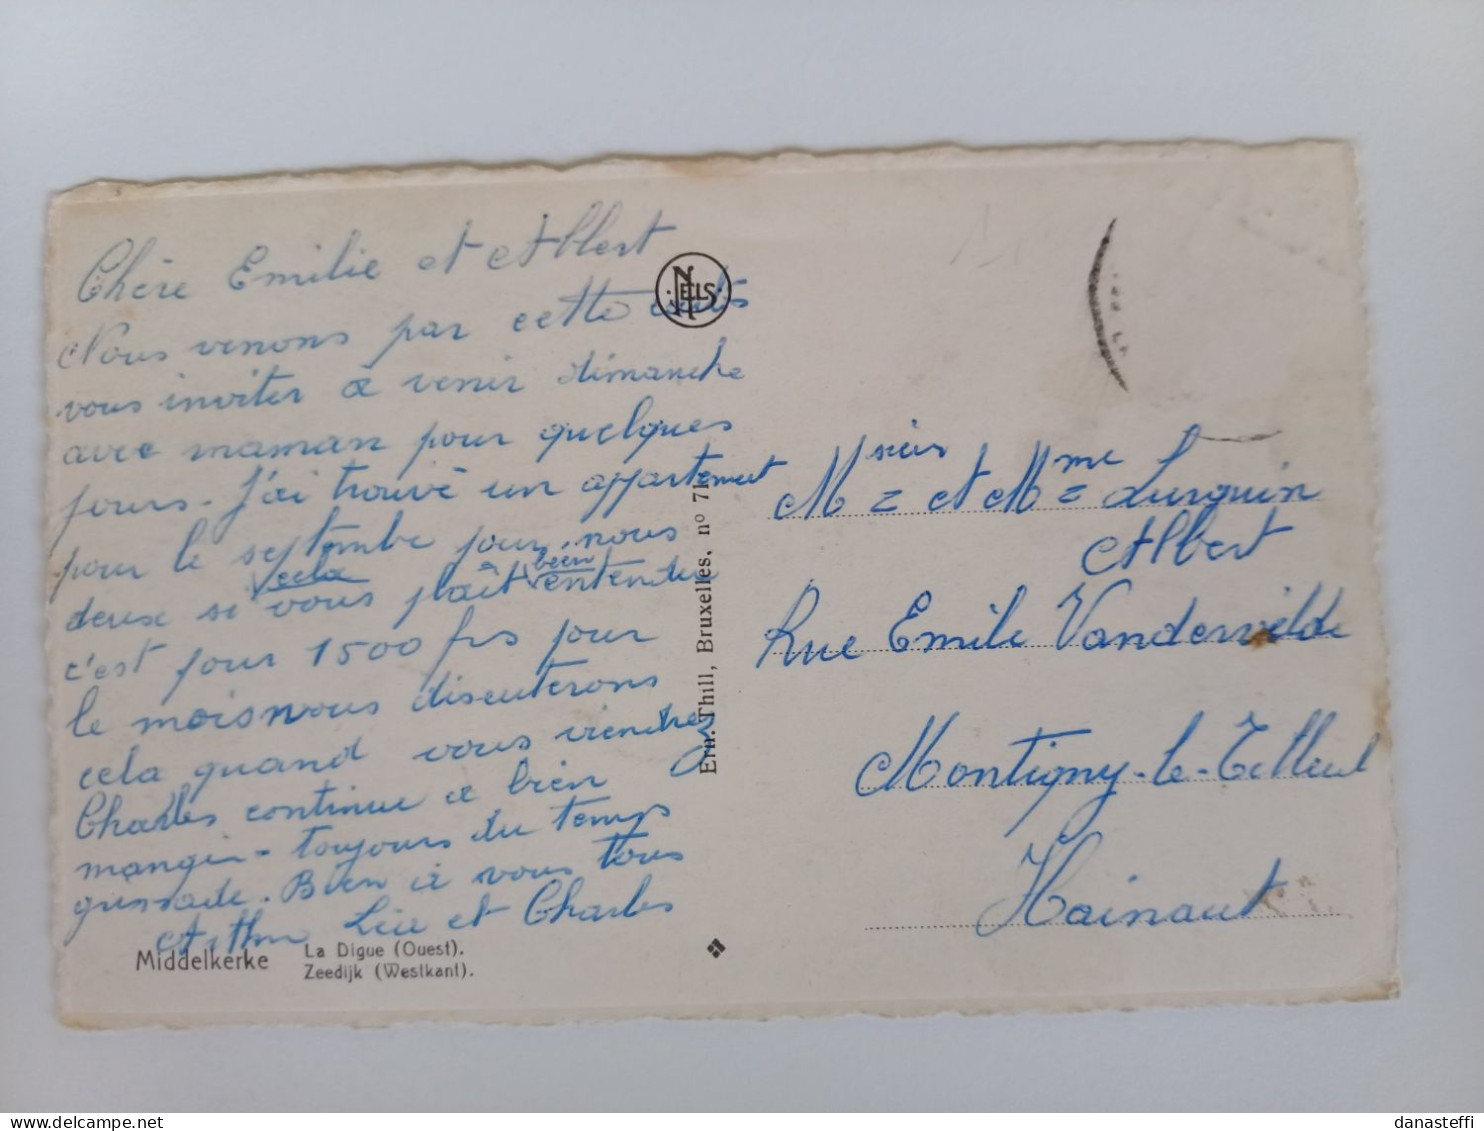 Chère Emilie et Albert
Nous venons par cette
vous inviter a venir dimanche
avec maman pour quelques
jours - J'ai trouvé un appartement
pour le septembre pour nous
cela bien
deux si vous plaît entendu
c'est pour 1500 frs pour
le mois nous discuterons
cela quand vous viendrez
Charles continue a bien
manger - toujours du temps
Bien à vous tous
Arthur et Charles
Middelkerke
La Digue (Ouest).
Zeedijk (Westkant).
NELS
Ern. Thill, Bruxelles, nº 71
Msieur et Mme Lurquin
Albert
Rue Emile Vandervelde
Montigny-le-Tilleul
Hainaut
danasteffi